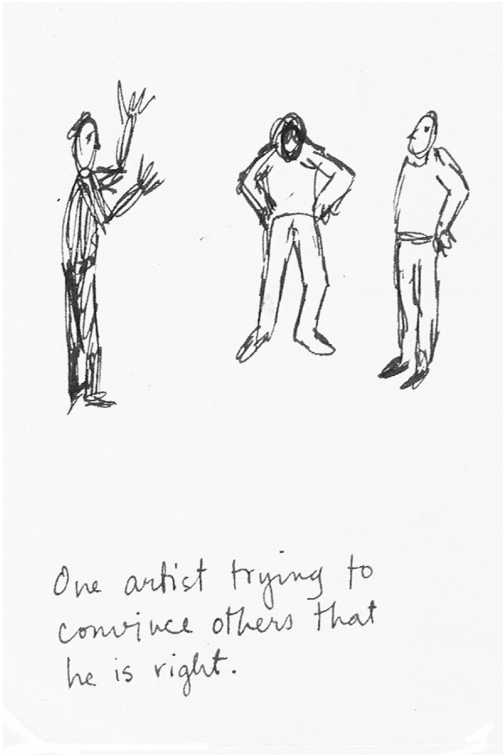 One artist trying to
convince others that
he is right.